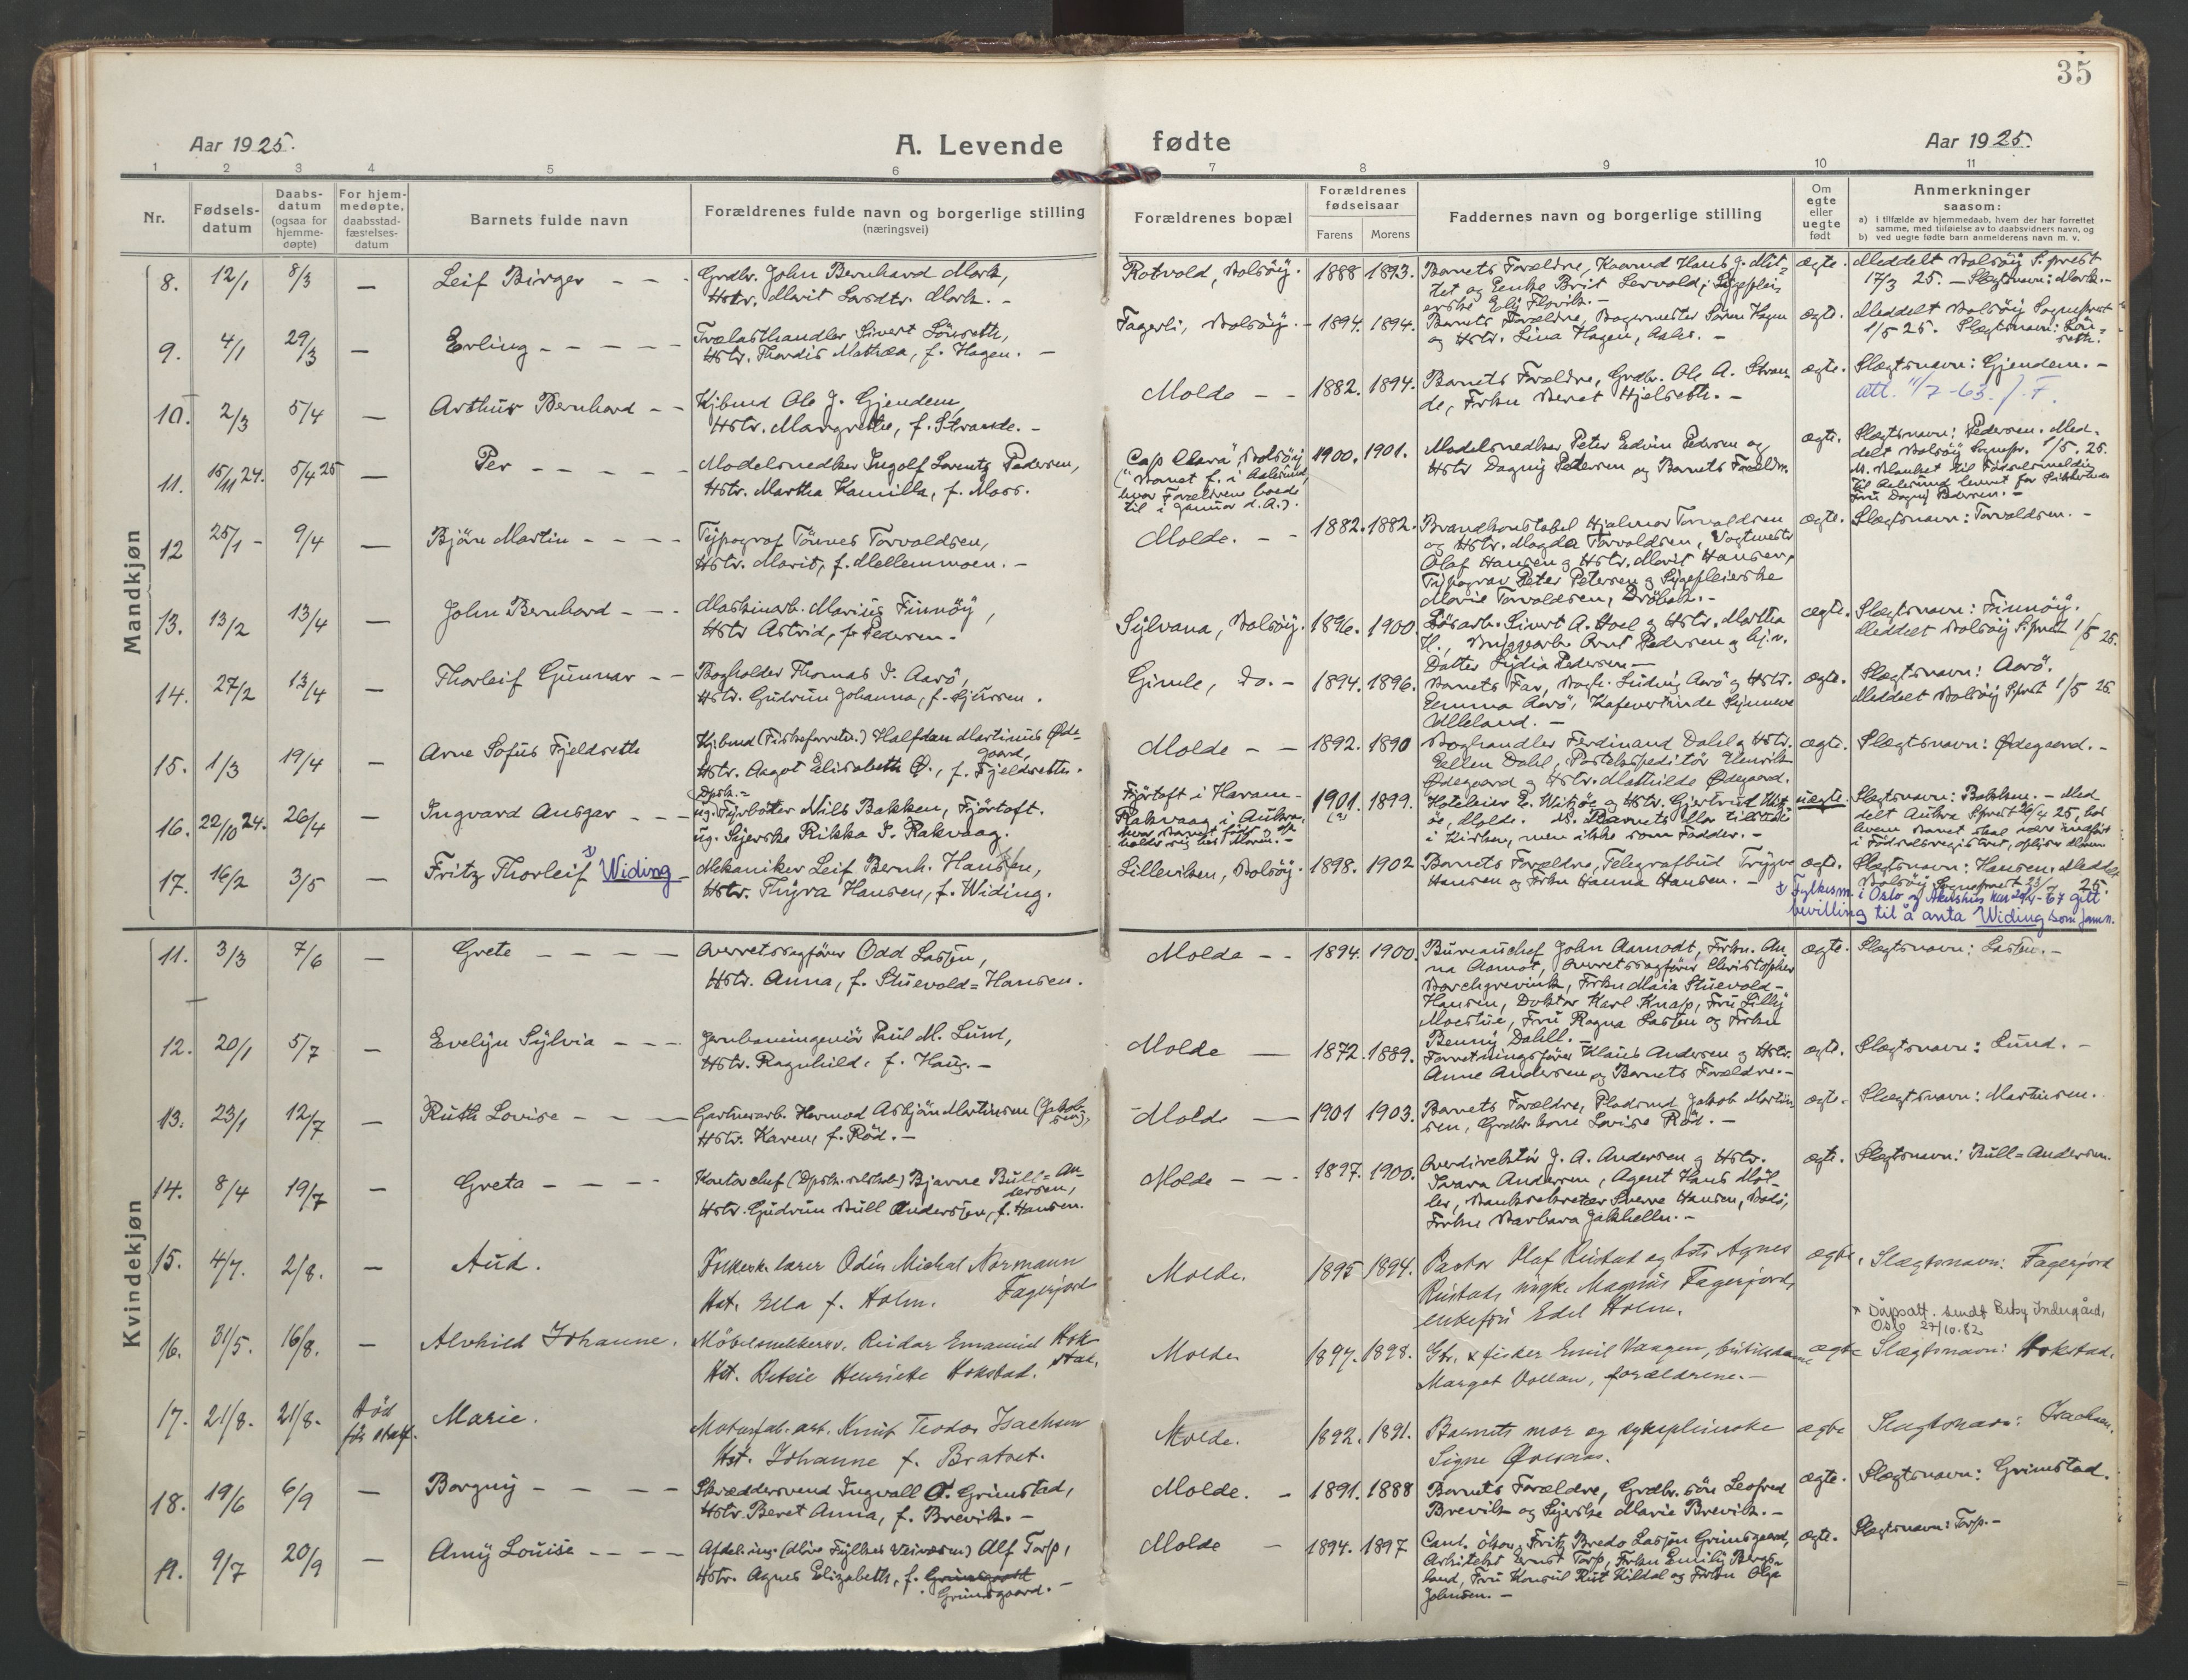 35
Aar 1925.
A. Levende fødte
Aar 1925.
1 2 3 4 5 6 7 8 9 10 11
Nr.
Fødsels-
datum
Daabs-
datum
(ogsaa for
hjemme-
døpte)
For hjem-
medøpte,
daabsstad-
fæstelses-
datum
Barnets fulde navn
Forældrenes fulde navn og borgerlige stilling
(næringsvei)
Forældrenes bopæl
Forældrenes
fødselsaar
Farens Morens
Faddernes navn og borgerlige stilling
Om
egte
eller
uegte
født
Anmerkninger
saasom:
a) I tilfælde av hjemmedaab, hvem der har forrettet
samme, med tilføielse av to daabsvidners navn, og
b) ved uegte fødte barn anmelderens navn m. v.
Mandkjøn
8. 12/1 8/3 — Leif Birger - -
Grdbr. John Bernhard Mork,
Hstr. Marit Larsdtr. Mork. -
Rotvold, Bolsöy. 1888 1893.
Barnets Forældre,
ægte.
Meddelt Bolsöy S.prest
17/3 25. — Slægtsnavn: Mork. -
9. 4/1 29/3 — Erling - - - - -
Trælasthandler Sivert Lönseth,
Hstr. Thordis Mathæa, f. Hagen. -
Fagerli, Bolsöy. - 1894. 1894.
Barnets Forældre, Bagermester Sören Hagen
og Hstr. Lina Hagen, Aales. -
ægte.
Meddelt Bolsöy Sogneprest
1/5 25. Slægtsnavn: Lön-
seth.
10. 2/3 5/4 — Arthur Bernhard - -
Kjbmd Ole J. Gjendem,
Hstr. Margrethe, f. Strande. -
Molde - - 1882. 1894.
Barnets Forældre, Grdbr. Ole A. Stran-
de, Frkn Beret Hjelseth. -
ægte.
Slægtsnavn: Gjendem. -
att. 11/7-63.
11. 15/11 24. 5/4 25 — Per - - - - -
Modelsnedker Ingolf Lorentz Pedersen,
Hstr. Martha Kamilla, f. Moss.
"Cap Clara", Bolsöy
(Barnet f. i Aalesund,
hvor Forældrene boede
til i januar d. A.).
1900. 1901.
Modelsnedker Peter Edvin Pedersen og
Hstr Dagny Pedersen og Barnets Forældre.
ægte.
Slægtsnavn: Pedersen. Med-
delt Bolsöy Sognepr. 1/5. 25.
Fru Dagny Pedersen. -
12 25/1 - 9/4 — Björn Martin - - - -
Typograf Tönnes Torvaldsen,
Hstr. Marit, f. Mellemmoen. -
Molde. - - 1882. 1882.
Brandkonstabel Hjalmar Torvaldsen
og Hstr. Magda Torvaldsen, Vagtmester
Olaf Hansen og Hstr. Marit Hansen,
Typograf Peter Petersen og Sygepleierske
Marie Torvaldsen, Dröbak. -
ægte.
Slægtsnavn: Torvaldsen. -
13. 13/2 13/4 — John Bernhard - - -
Maskinarb. Marius Finnöy,
Hstr Astrid, f. Pedersen. -
Sylvana, Bolsöy. 1896. 1900.
Lösarb. Sivert A. Hoel og Hstr. Martha
H., Bryggearb. Arnt Pedersen og hj.v.
Datter Lydia Pedersen —
ægte.
Slægtsnavn: Finnöy.
Meddelt Bolsöy S.prest 1/5 25.
14. 27/2 13/4 — Thorleif Gunnar - -
Bogholder Thomas J. Aarö,
Hstr. Gudrun Johanna, f. Sjursen.
Gimle, do. - 1894. 1896.
Barnets Far, Bagh. Ludvig Aarö og Hstr.
Emma Aarö, Kafevertinde Synnöve
Ulleland. -
ægte.
Slægtsnavn: Aarö.
Meddelt Bolsöy S.prest 1/5 25.
15. 1/3 19/4 — Arne Sofus Fjeldseth
Kjbmd (Fiskeforretn.) Halfdan Martinus Øde-
gaard,
Hstr. Aagot Elisabeth Ø., f. Fjeldseth.
Molde - - 1892. 1890
Boghandler Ferdinand Dahl og Hstr.
Ellen Dahl, Postekspeditör Henrik
Ødegaard og Hstr. Mathilde Ødegaard.
ægte.
Slægtsnavn: Ødegaard. -
16. 22/10 24. 26/4 — Ingvard Ansgar - - -
Dpsk.=
ug. Fyrböter Nils Bakken, Fjörtoft.
ug. Sjerske Rikka P. Rakvaag.
Fjörtoft i Haram -
Rakvaag i Aukra,
hvor Barnet födt og
holder sig hos Moren. -
1901. (?) 1899.
Hoteleier E. Witzöe og Hstr. Gjertrud Witz
öe, Molde. N. Barnets Mor tilstede
i Kirken, men ikke som Fadder. -
uægte.
Slægtsnavn: Bakken. - Med
delt Aukra S.prest 26/4 25, hos
hvem Barnet skal være indfört
i Födselsregistret, oplyser Moren
17. 16/2 3/5 — Fritz Thorleif x) Widing -
Mekaniker Leif Bernh. Hansen,
Hstr. Thyra Hansen, f. Widing.
Lilleviken, Bolsöy. 1898. 1902
Barnets Forældre, Telegrafbud Trygve
Hansen og Frkn Hanna Hansen. -
ægte.
Slægtsnavn: Hansen. Meddelt
Bolsöy Sogneprest 25.
x) Fylkesm. i Oslo og Akershus har 67 gitt
bevilling til å anta Widing som famn.
Kvindekjøn
11. 3/3 7/6 — Grete - - - -
Overretssagförer Odd Lassen,
Hstr. Anna, f. Stuevold=Hansen.
Molde - - 1894. 1900.
Bureauchef John Aamodt, Frkn. An-
na Aamot, Overretssagförer Christopher
Borchgrevink, Frkn Maia Stuevold-
Hansen, Doktor Karl Knap, Fru Lilly
Moestue, Fru Ragna Lassen og Frkn
Benny Dahll. -
ægte.
Slægtsnavn: Lassen. -
12. 20/1 5/7 — Evelyn Sylvia - - -
Jernbaneingeniör Paul M. Lund,
Hstr. Ragnhild, f. Haug. -
Molde — 1872. 1889.
Forretningsförer Klaus Andersen og Hstr.
Anne Andersen og Barnets Forældre. -
ægte.
Slægtsnavn: Lund. -
13. 23/1 12/7 — Ruth Lovise - - -
Gartnerarb. Hermod Asbjörn Martinsen (Jakob-
sen),
Hstr. Karen, f. Röd. -
Molde — 1901 1903.
Barnets Forældre, Pladsmd Jakob Martin
sen, Grdbr. kone Lovise Röd. -
ægte.
Slægtsnavn: Martinsen.
14. 8/4 19/7 — Greta - - - -
Kontorchef (Dpsk. selskab) Bjarne Bull=An-
dersen,
Hstr. Gudrun Bull Anderssen, f. Hansen.
Molde - - - 1897. 1900.
Overdirektör J. A. Andersen og Hstr.
Svara Andersen, Agent Hans Möl-
ler, Banksekretær Sverre Hansen, Bodö,
Frkn Barbara Jakhelln. -
ægte.
Slægtsnavn: Bull=Andersen.
15. 4/7. 2/8. — Aud.
Folkesk. lærer Odin Michal Normann
Fagerjord
Hst. Ella f. Holm.
Molde. 1895 1894.
Pastor Olaf Rustad og Hst. Agnes
Rustad, ungk. Magnus Fagerjord,
enkefru Edel Holm.
ægte.
Slægtsnavn: Fagerjord
x Dåpsatt. sendt Betzy Indergård,
Oslo 27/10.82
16. 31/5. 16/8. — Alvhild Johanne.
Möbelsnekkersv. Reidar Emanuel Hok
stad,
Hst. Betzie Henriette Hokstad.
Molde. 1897. 1898.
Gbr. & fisker Emil Vaagen, butikdame
Margot Vollan, forældrene. -
ægte
Slægtsnavn: Hokstad.
17. 21/8. 21/8. Död
för stadf. Marie.
Motorfab. arb. Knut Teodor Isachsen
Hst. Johanne f. Bratset.
Molde. 1892. 1891.
Barnets mor og sykepleierske
Signe
ægte
Slægtsnavn: Isachsen.
18. 19/6 6/9 — Borgny - - - -
Skræddersvend Ingvall O. Grimstad,
Hstr. Beret Anna, f. Brevik. -
Molde. - 1891. 1888
Barnets Forældre, Grdbr. sön Leofred
Brevik og Sjerske Marie Brevik. -
ægte.
Slægtsnavn: Grimstad.
19. 9/7 20/9 — Amy Louise - - - -
Afdel.ing. (Möre Fylkes Veivæsen) Alf Torp,
Hstr. Agnes Elizabeth, f.
Grimsgaard. -
Molde - 1894. 1897
Cand. ökon. Fritz Bredo Lassön Grimsgaard,
Arkitekt Ernst Torp, Frkn Emily Bergs-
land, Fru Konsul Rut Kildal og Frkn Olga
Johnsen. -
ægte.
Slægtsnavn: Torp. -